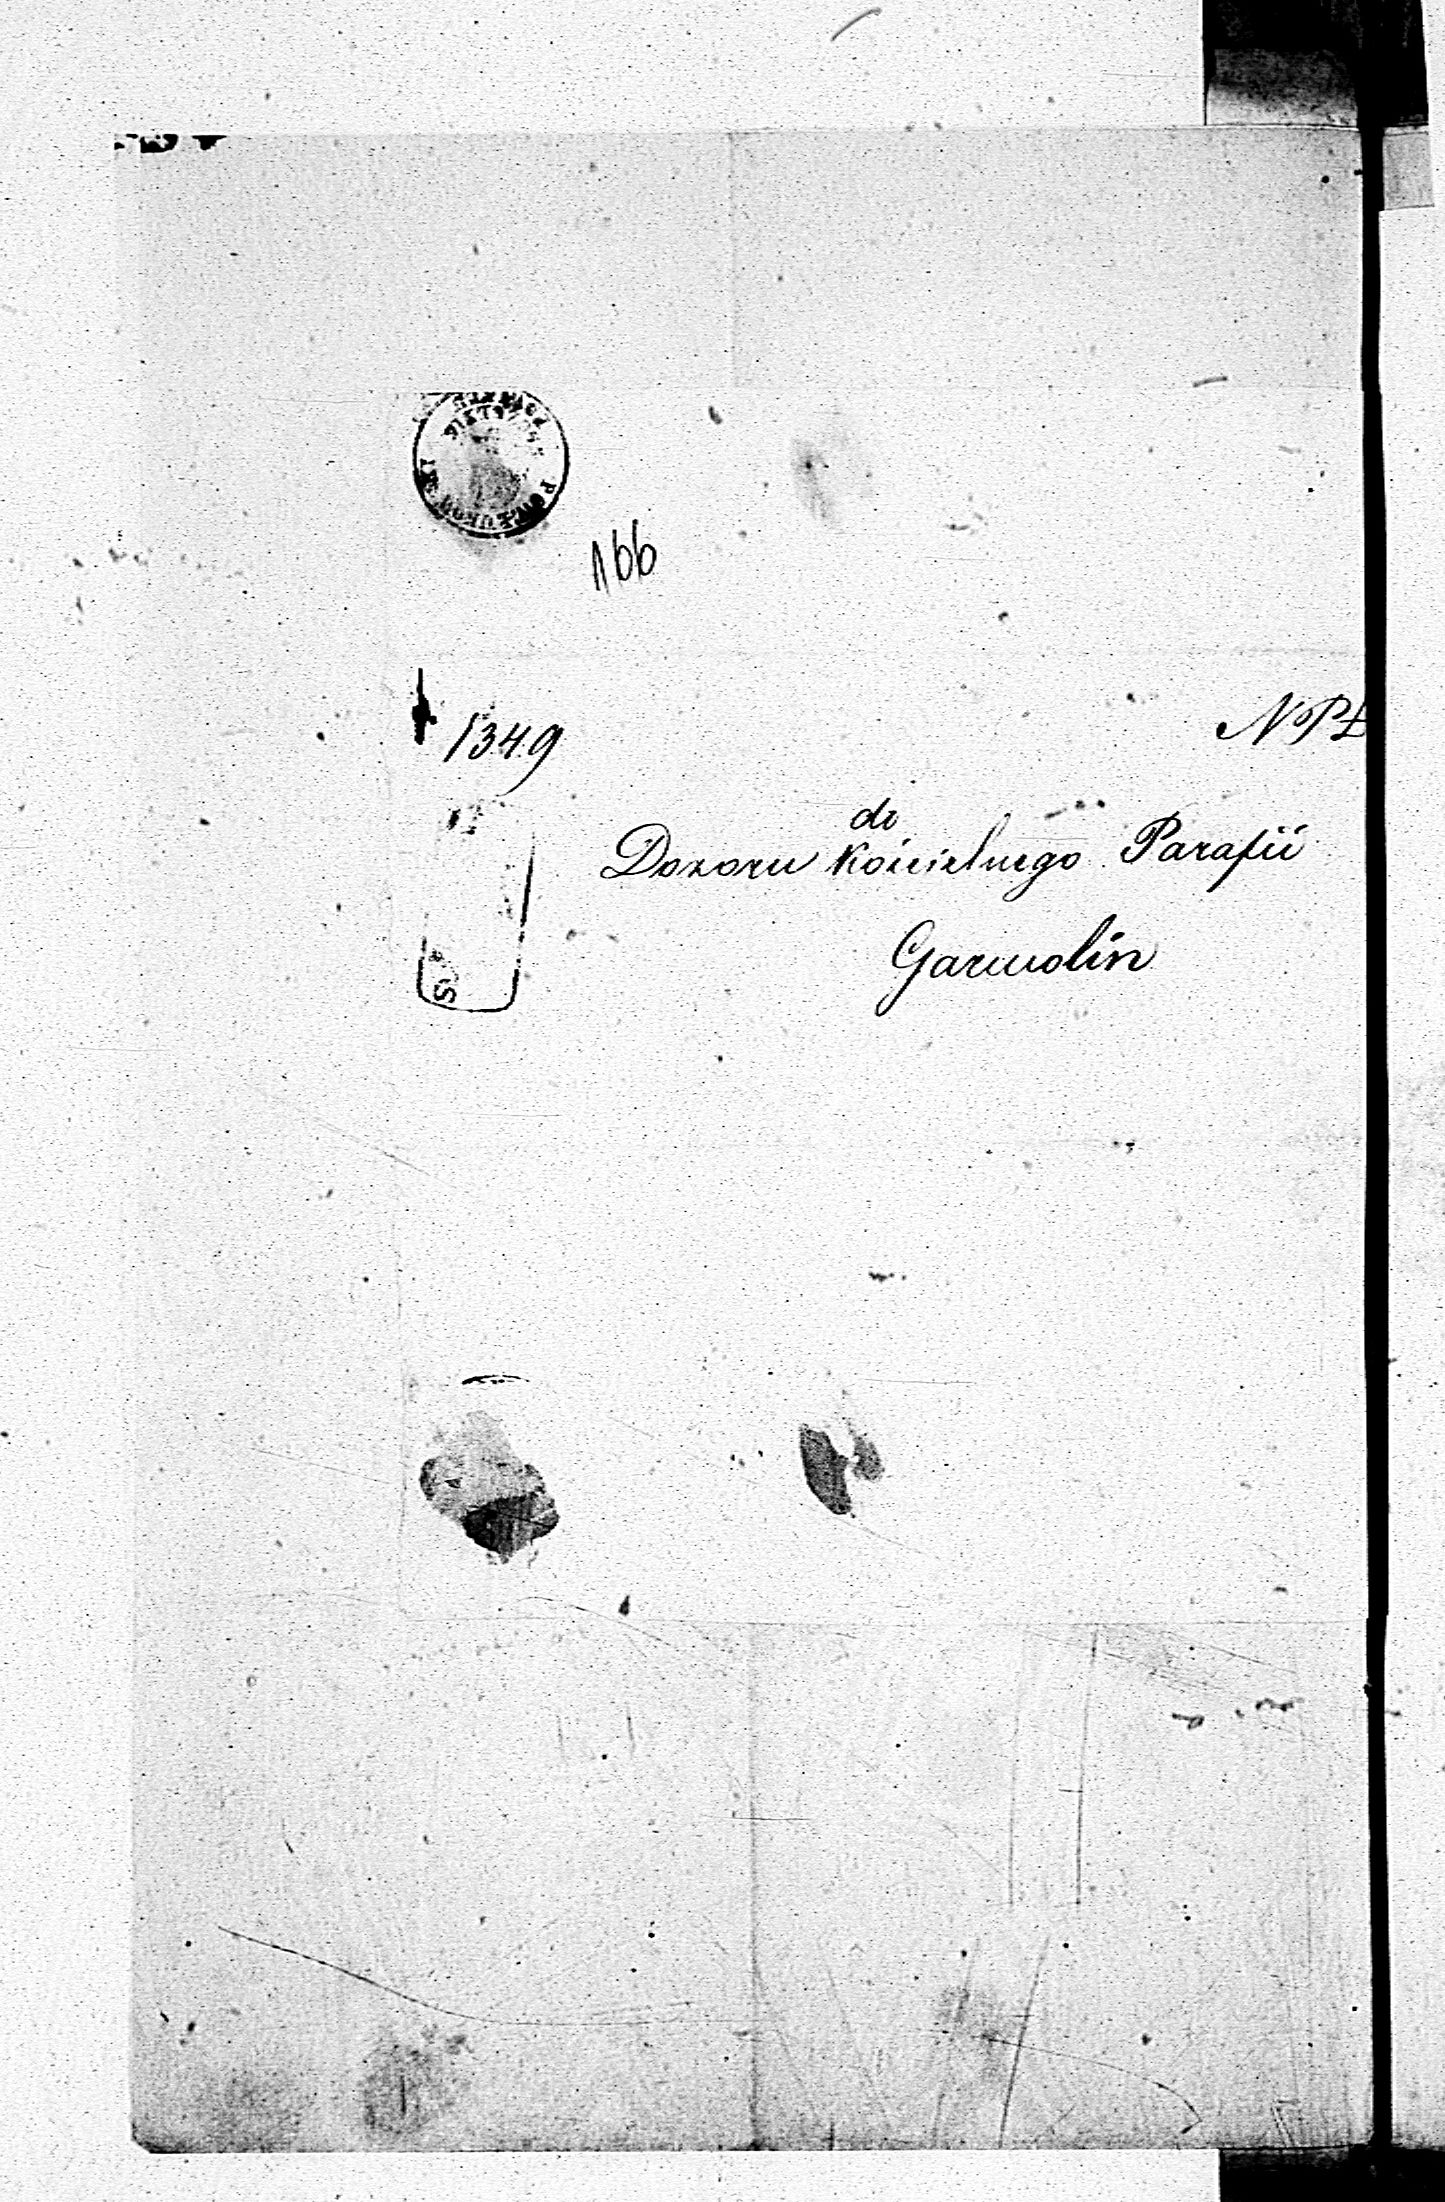 166
1349
do
Dozoru Kościelnego Parafii
Garwolin